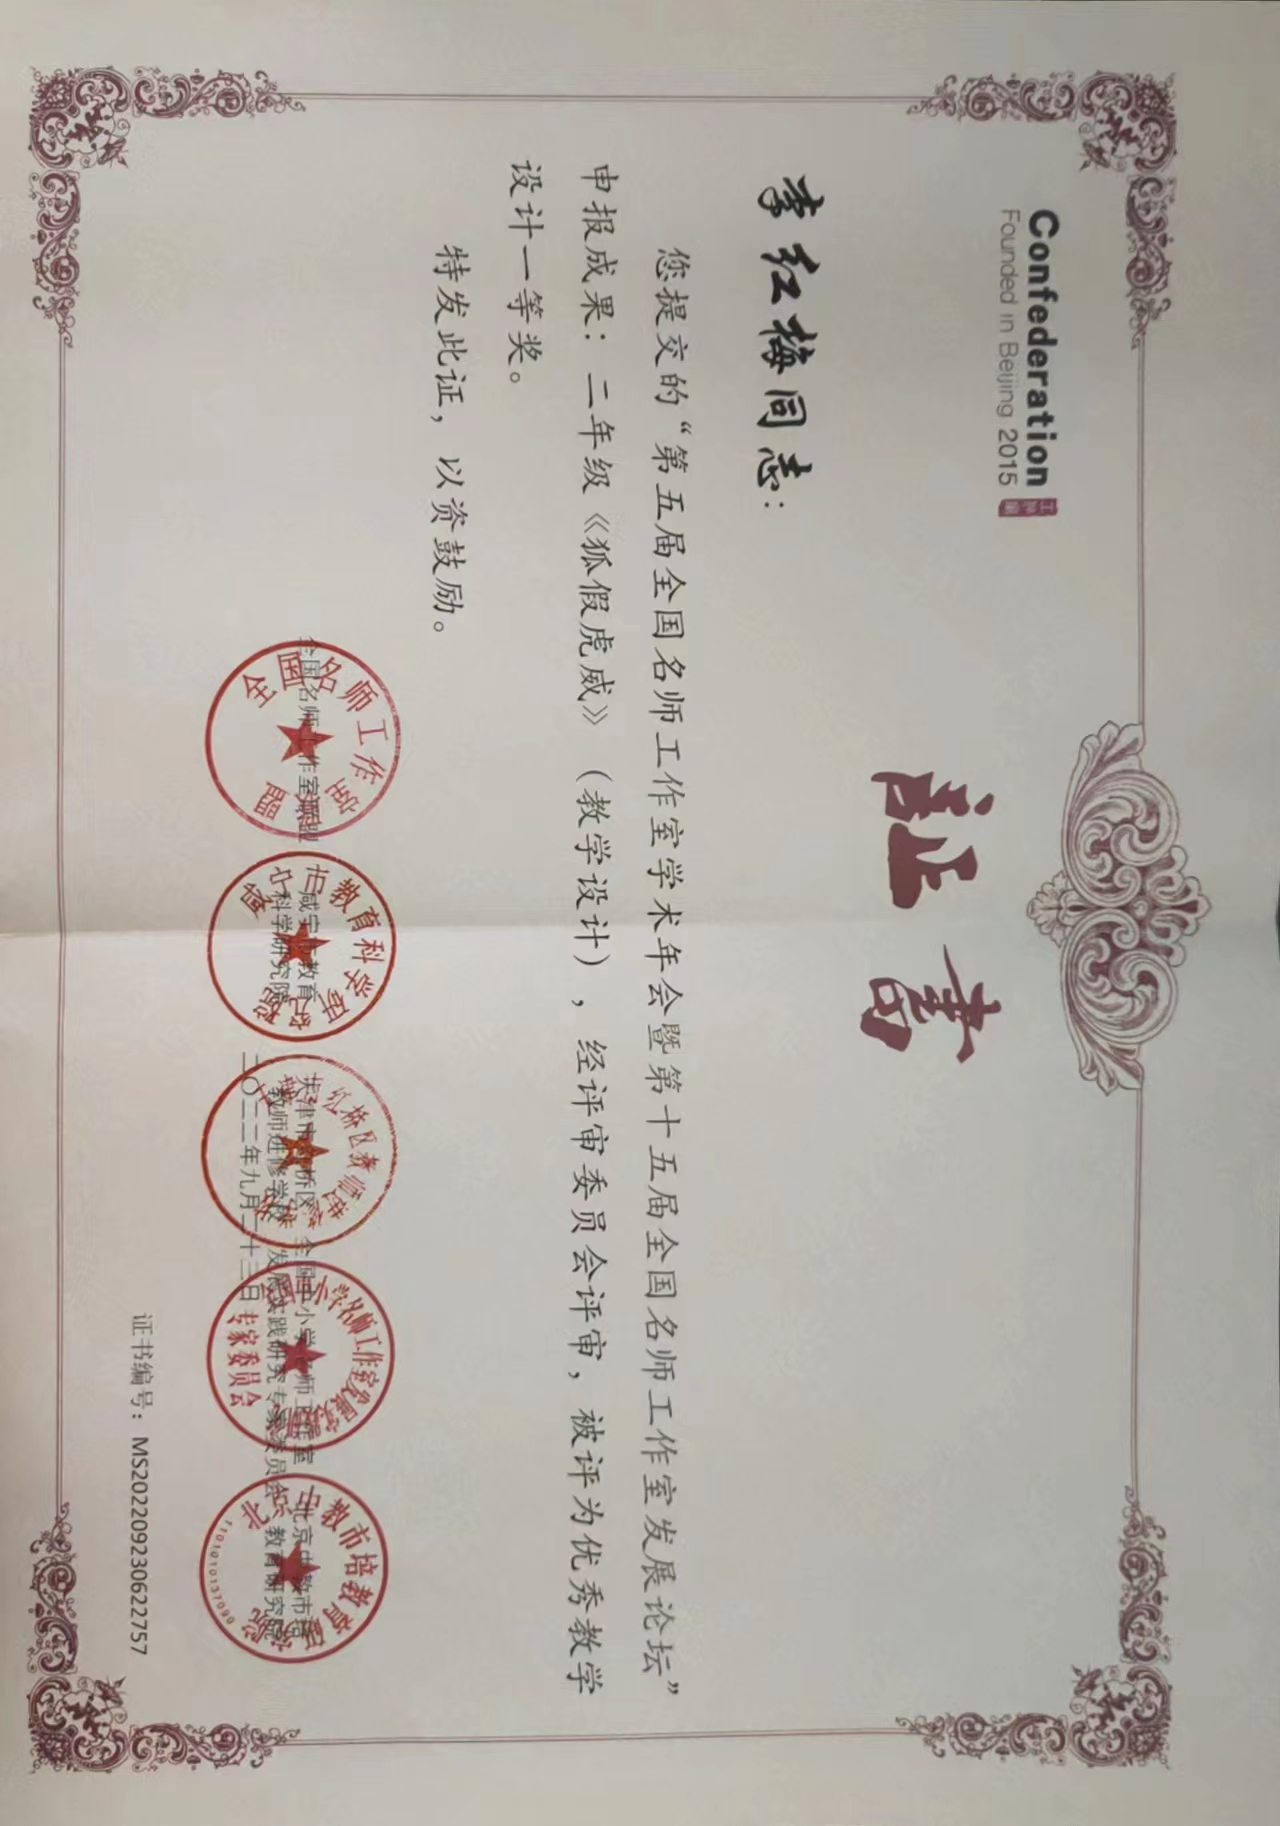 Confederation
Founded in Beijing 2015
证书
李红梅同志：
您提交的“第五届全国名师工作室学术年会暨第十五届全国名师工作室发展论坛”
申报成果：二年级《狐假虎威》（教学设计），经评审委员会评审，被评为优秀教学
设计一等奖。
特发此证，以资鼓励。
全国名师工作室联盟
咸宁市教育
科学研究院
天津市红桥区
教师进修学校
全国中小学名师工作室
发展实践研究专家委员会
北京中教市培
教育研究院
二〇二二年九月二十三日
专家委员会
1101010137090
证书编号：MS20220923062​2757